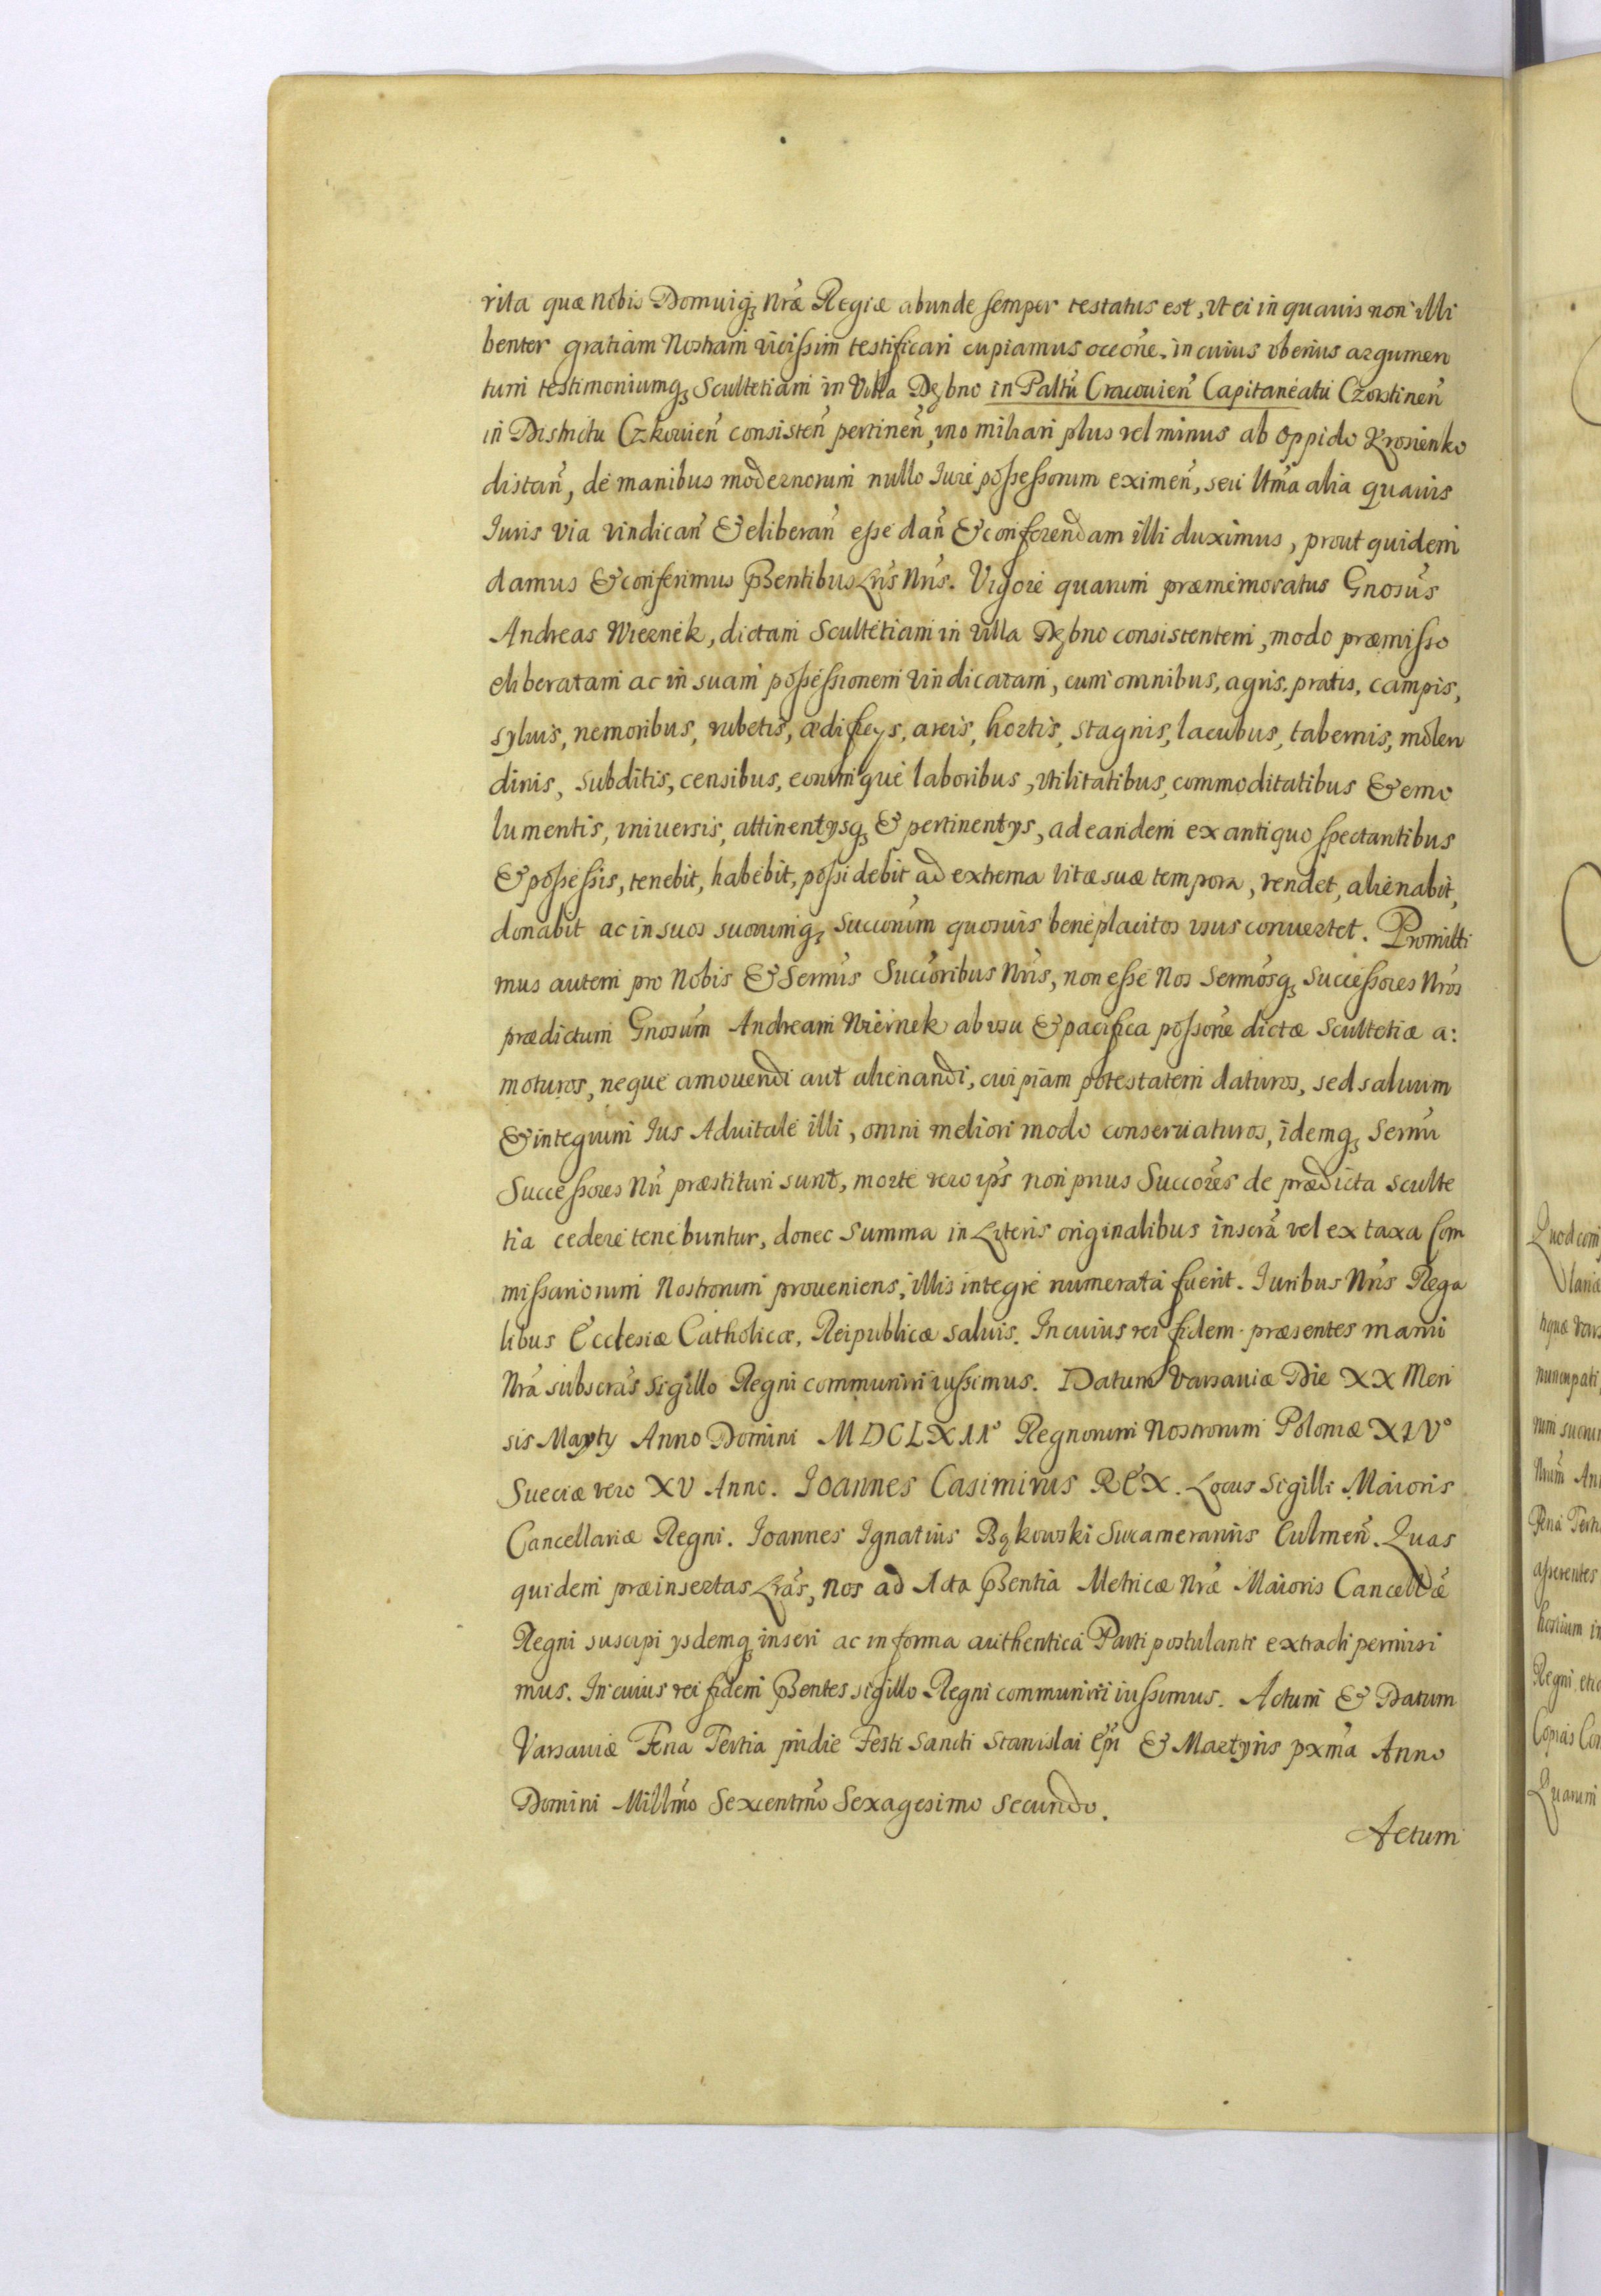 rita quæ Nobis Domuiq₃ Nræ Regiæ abunde semper testatus est, vt ei in quauis non illi
benter gratiam Nostram vicissim testificari cupiamus occõne. in cuius vberius argumen
tum testimoniumq₃ Scultetiam in Villa Dębno in Paltũ Cracouieñ Capitaneatu Czorstineñ
in Districtu Czkouieñ consisteñ pertineñ, vno miliari plus vel minus ab oppido Krosienko
distañ, de manibus modernorum nullo Iure possessorum eximeñ, seu Vtmã alia quauis
Iuris via vindicañ & eliberañ esse dañ & conferendam illi duximus, prout quidem
damus & conferimus Pñtibus Lrĩs Nrĩs. Vigore quarum præmemoratus Gnosũs
Andreas Wiernek, dictam Scultetiam in Villa Dębno consistentem, modo præmisso
eliberatam ac in suam possessionem vindicatam, cum omnibus, agris, pratis, campis,
syluis, nemoribus, rubetis, ædificys, areis, hortis, stagnis, lacubus, tabernis, molen
dinis, subditis, censibus, eorumque laboribus, vtilitatibus, commoditatibus & emo
lumentis, vniuersis, attinentysq₃ & pertinentys, ad eandem ex antiquo spectantibus
& possessis, tenebit, habebit, possidebit ad extrema vitæ suæ tempora, vendet, alienabit,
donabit ac in suos suorumq₃ Succorũm quosuis beneplacitos vsus conuertet. Promitti
mus autem pro Nobis & Sermĩs Succoribus Nrĩs, non esse Nos Sermosq₃ Successores Nros
prædictum Gnosũm Andream Wiernek ab vsu & pacifica possõne dictæ Scultetiæ a:
moturos, neque amouendi aut alienandi, cuipiam potestatem daturos, sed saluum
& integrum Ius Aduitale illi, omni meliori modo conseruaturos, idemq₃ Sermi
Successores Nrĩ præstituri sunt, morte vero ipsĩ non prius Succorẽs de prædicta Sculte
tia cedere tenebuntur, donec Summa in Literis originalibus inserã vel ex taxa Com
missariorum Nostrorum proueniens, illis integre numerata fuerit. Iuribus Nrĩs Rega
libus Ecclesiæ Catholicæ, Reipublicæ saluis. In cuius rei fidem præsentes manu
Nrã subscrãs Sigillo Regni communiri iussimus. Datum Varsauiæ Die XX Men
sis Mayty Anno Domini MDCLXII° Regnorum Nostrorum Poloniæ XIV°
Sueciæ vero XV Anno. Ioannes Casimirus REX. Locus Sigilli Maioris
Cancellariæ Regni. Ioannes Ignatius Bąkowski Sucamerarius Culmeñ. Quas
quidem præinsertas Lrãs, Nos ad Acta Pñtia Metricæ Nræ Maioris Cancellæ
Regni suscipi ysdemq₃ inseri ac in forma authentica Parti postulanti extradi permisi
mus. In cuius rei fidem Pñtes sigillo Regni communiri iussimus. Actum & Datum
Varsauiæ Feria Tertia pridie Festi Sancti Stanislai Epĩ & Martyris pxmã Anno
Domini Millmõ Sexcentmõ Sexagesimo Secundo.
Actum
Quod com
hquæ
nuncupati
rum suoru
Nrum An
Feria Terti
asserentes
hostium in
Regni etia
Copias Con
Quarum